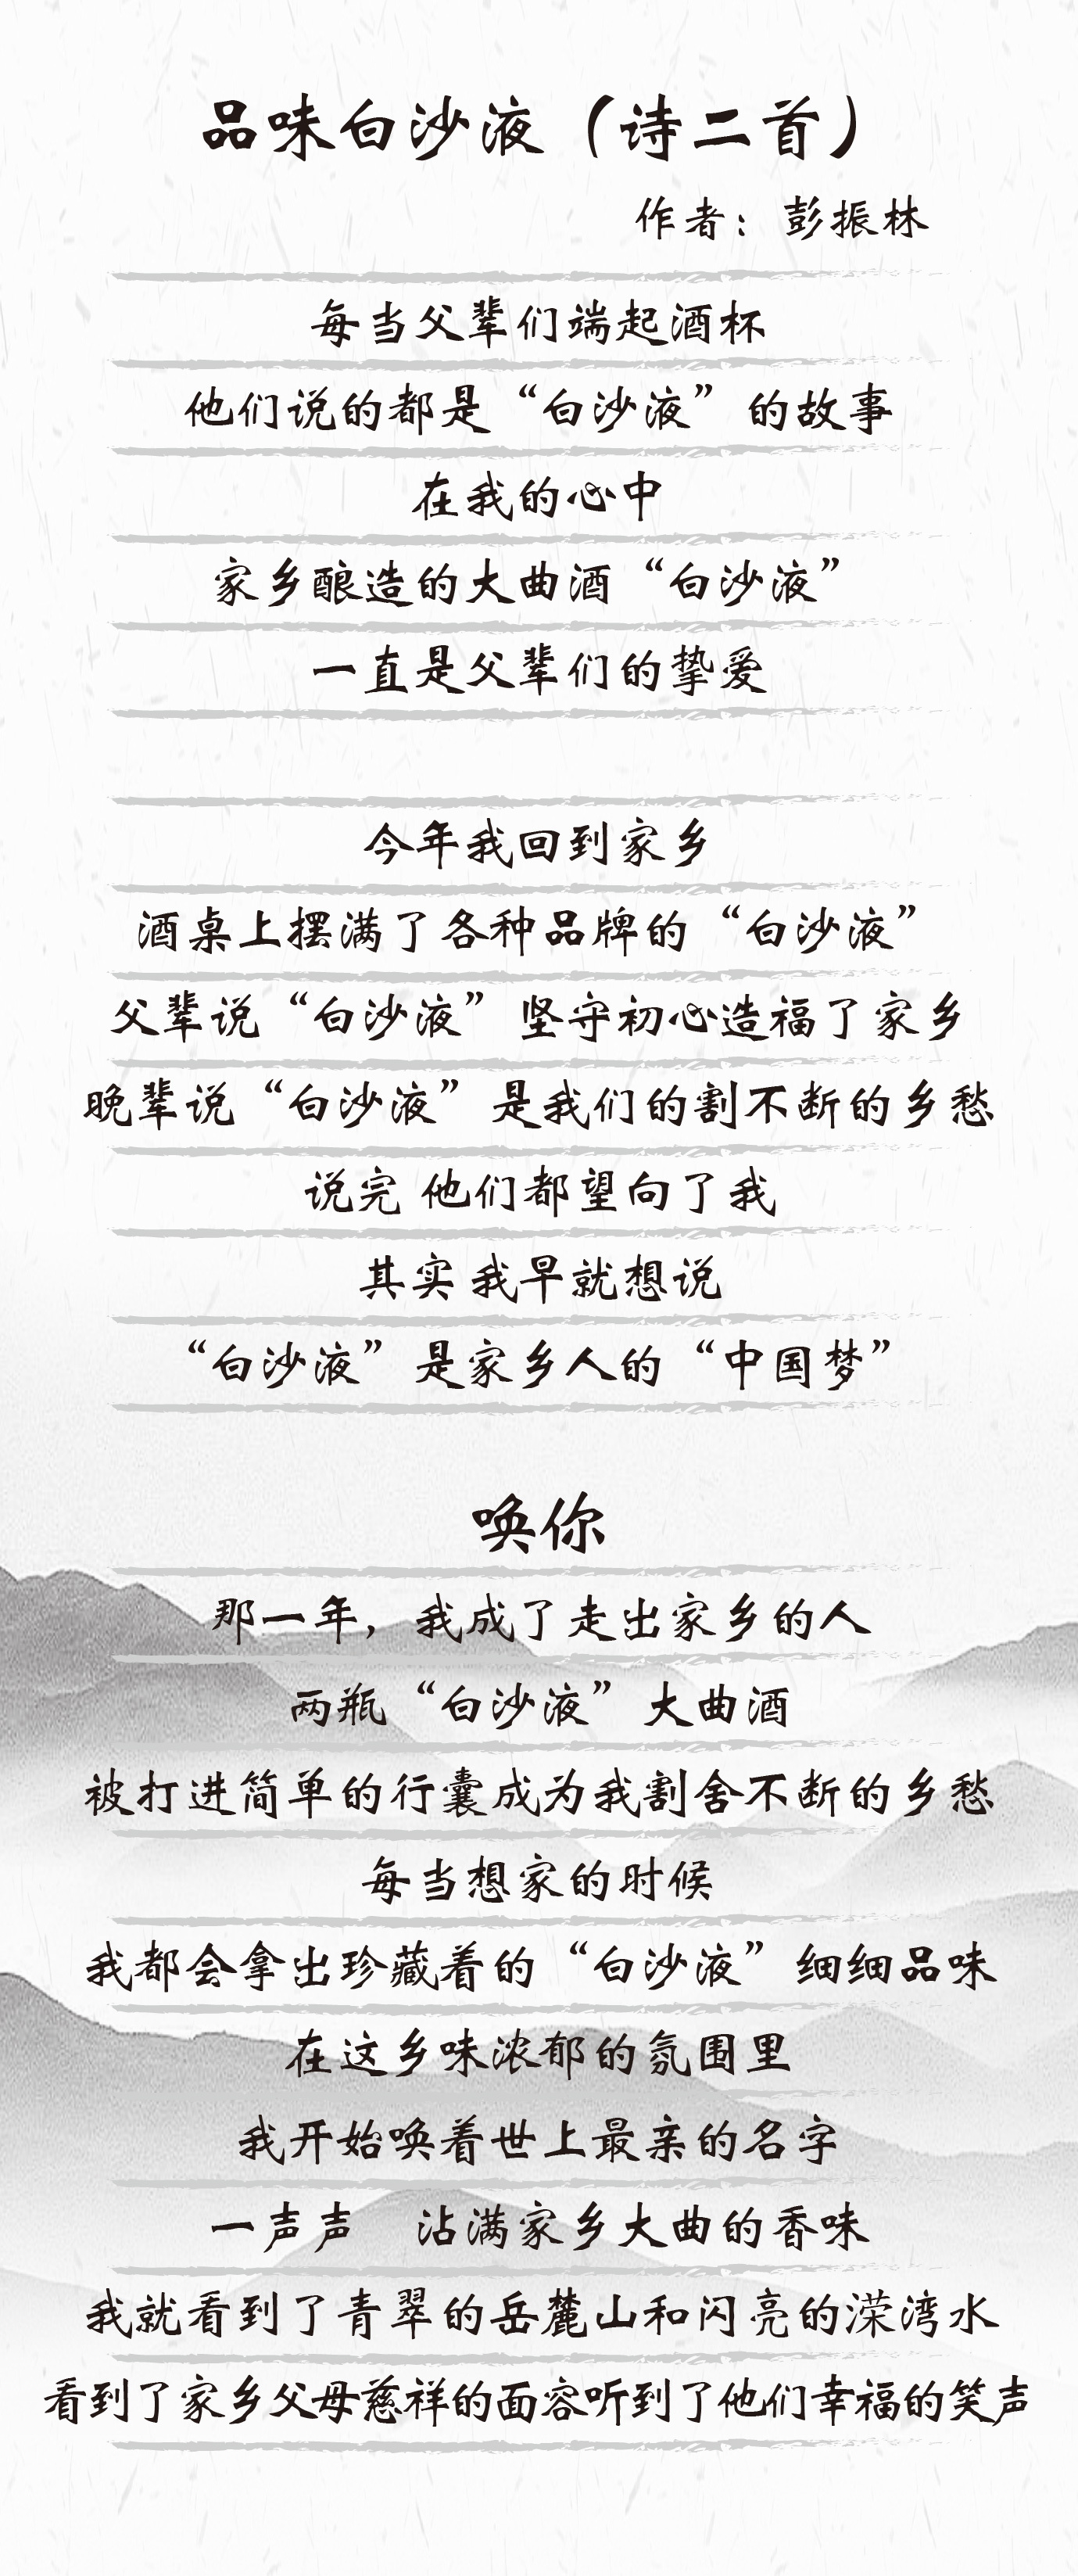 品味白沙液（诗二首）
作者：彭振林
每当父辈们端起酒杯
他们说的都是“白沙液”的故事
在我的心中
家乡酿造的大曲酒“白沙液”
一直是父辈们的挚爱
今年我回到家乡
酒桌上摆满了各种品牌的“白沙液”
父辈说“白沙液”坚守初心造福了家乡
晚辈说“白沙液”是我们的割不断的乡愁
说完 他们都望向了我
其实 我早就想说
“白沙液”是家乡人的“中国梦”
唤你
那一年，我成了走出家乡的人
两瓶“白沙液”大曲酒
被打进简单的行囊成为我割舍不断的乡愁
每当想家的时候
我都会拿出珍藏着的“白沙液”细细品味
在这乡味浓郁的氛围里
我开始唤着世上最亲的名字
一声声　沾满家乡大曲的香味
我就看到了青翠的岳麓山和闪亮的溁湾水
看到了家乡父母慈祥的面容听到了他们幸福的笑声